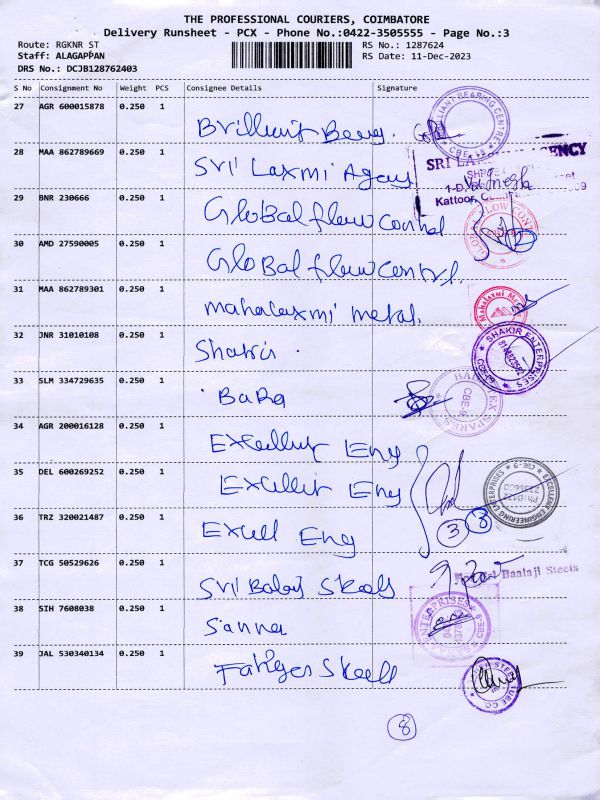 THE PROFESSIONAL COURIERS, COIMBATORE
Delivery Runsheet - PCX - Phone No.:0422-3505555 - Page No.:3
Route: RGKNR ST
RS No.: 1287624
Staff: ALAGAPPAN
RS Date: 11-Dec-2023
DRS No.: DCJB128762403
S No Consignment No Weight PCS Consignee Details Signature
27 AGR 600015878 0.250 1
Brilliant Beng.
BRILLIANT BEARING CENTRE
CBE-18
28 MAA 862789669 0.250 1
Sri Laxmi Agency
SRI LA ENCY
1-D,
Kattoor,
29 BNR 230666 0.250 1
Global flow control
30 AMD 27590005 0.250 1
Global flow control.
31 MAA 862789301 0.250 1
mahalaxmi metal.
Mahalaxmi Me
32 JNR 31010108 0.250 1
Shakir.
SHAKIR ENTERPRISES
CBE-09
33 SLM 334729635 0.250 1
BaRa
EX SPARKS
CBE-9
34 AGR 200016128 0.250 1
Excellent Eng
35 DEL 600269252 0.250 1
Excellent Eng
EXCELLENT ENGINEERING ENTERPRISES
CBE-9
36 TRZ 320021487 0.250 1
Excell Eng
3 8
37 TCG 50529626 0.250 1
Sri Balaji Steels
Baalaji Steels
38 SIH 7608038 0.250 1
Sanna
ENTERPRISES
CBE-9
39 JAL 530340134 0.250 1
Steell
STEEL TUBE CO.
8